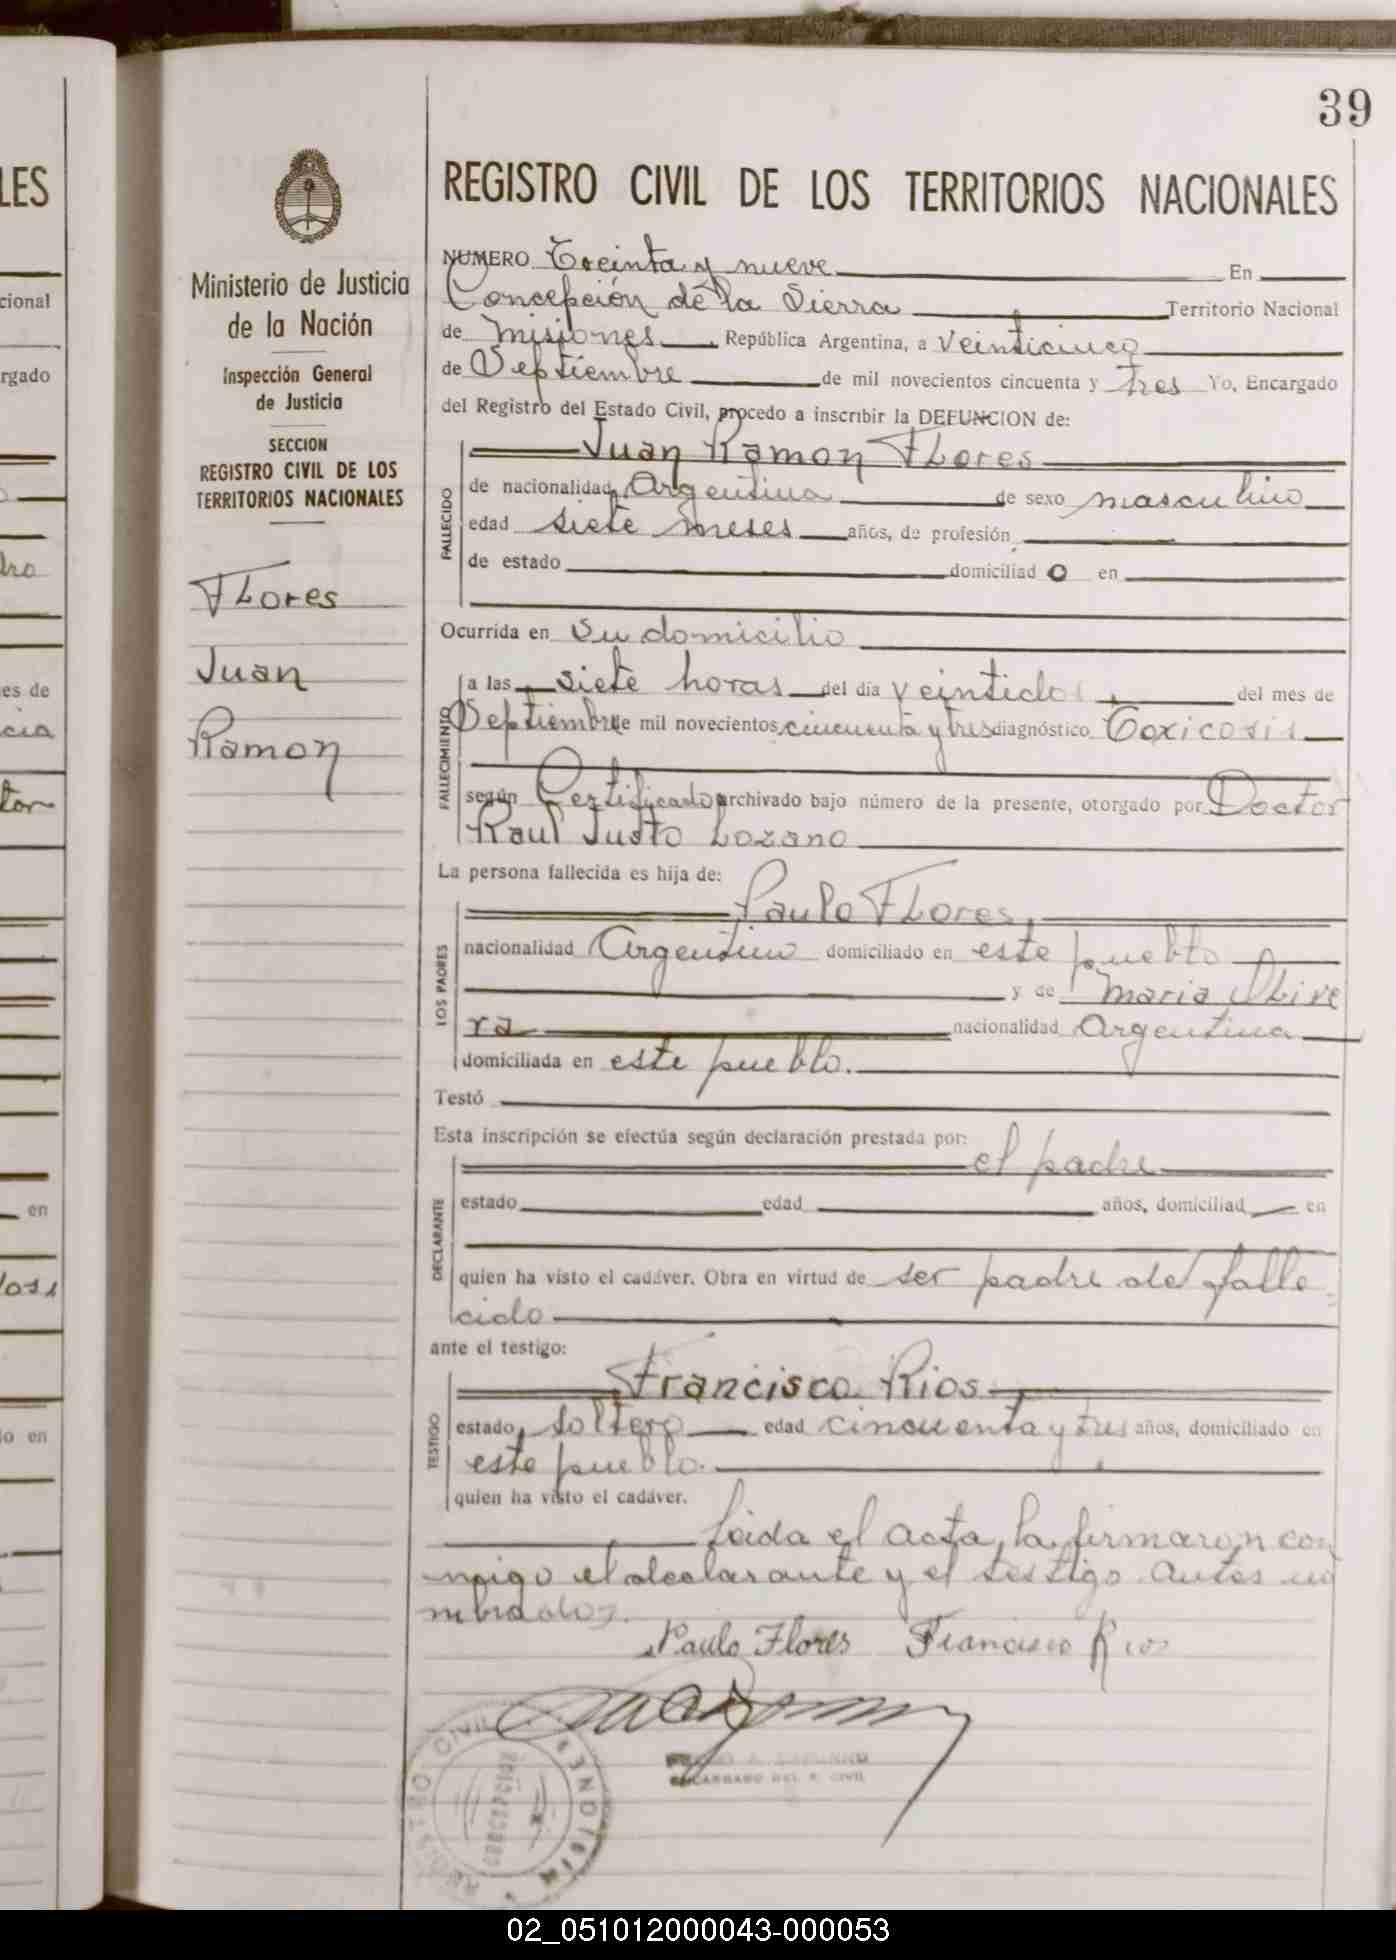 39
LES
cional
rgado
dro
es de
cia
tor
en
lo en
Ministerio de Justicia
de la Nación
Inspección General
de Justicia
SECCION
REGISTRO CIVIL DE LOS
TERRITORIOS NACIONALES
Flores
Juan
Ramon
REGISTRO CIVIL DE LOS TERRITORIOS NACIONALES
NUMERO Treinta y nueve En
Concepción de la Sierra Territorio Nacional
de Misiones República Argentina, a veinticinco
de Septiembre de mil novecientos cincuenta y tres Yo, Encargado
del Registro del Estado Civil, procedo a inscribir la DEFUNCION de:
Juan Ramon Flores
FALLECIDO
de nacionalidad Argentina de sexo masculino
edad siete meses años, de profesión
de estado domiciliad o en
Ocurrida en Su domicilio
FALLECIMIENTO
a las siete horas del dia veintidos del mes de
Septiembre de mil novecientos cincuenta y tres diagnóstico Toxicosis
según Certificado archivado bajo número de la presente, otorgado por Doctor
Raul Justo Lozano
La persona fallecida es hija de:
LOS PADRES
Paulo Flores
nacionalidad Argentino domiciliado en este pueblo
y de Maria Olive
ra nacionalidad Argentina
domiciliada en este pueblo.
Testó
Esta inscripción se efectúa según declaración prestada por:
DECLARANTE
el padre
estado edad años, domiciliad en
quien ha visto el cadáver. Obra en virtud de ser padre del falle-
cido
ante el testigo:
TESTIGO
Francisco Rios
estado soltero edad cincuenta y tres años, domiciliado en
este pueblo.
quien ha visto el cadáver.
Leida el acta, la firmaron con
migo el declarante y el testigo antes no
mbrados.
Paulo Flores Francisco Rios
ENCARGADO DEL R. CIVIL
REGISTRO CIVIL
MISIONES
02_051012000043-000053